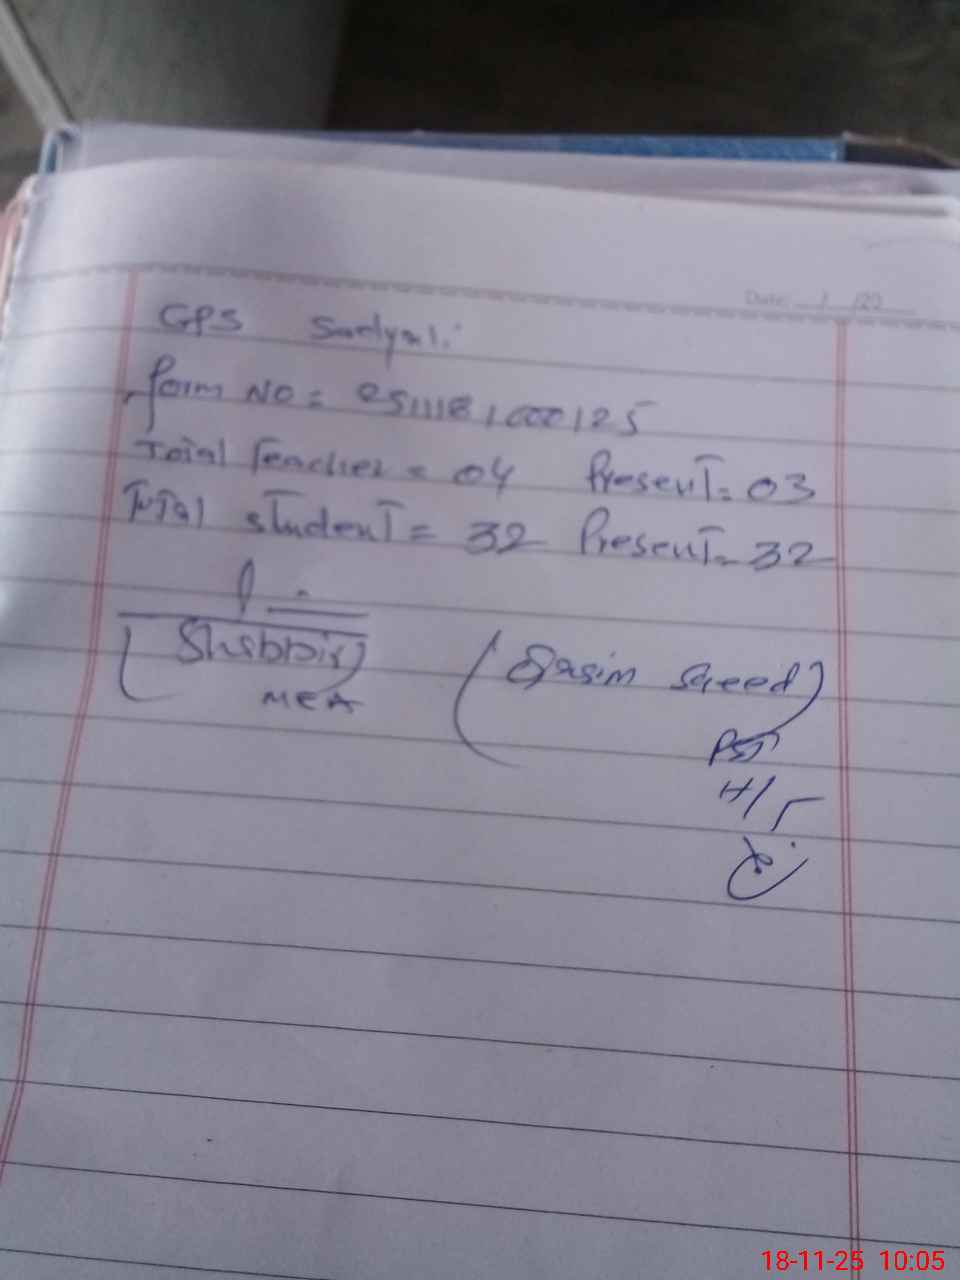 Date: __/__/20__
GPS Sadyal.
form NO = 2511181000125
Total Teacher = 04 Present = 03
Total student = 32 Present = 32
(Shabbir) (Qasim Saeed)
MEA
PST
H/T
18-11-25 10:05